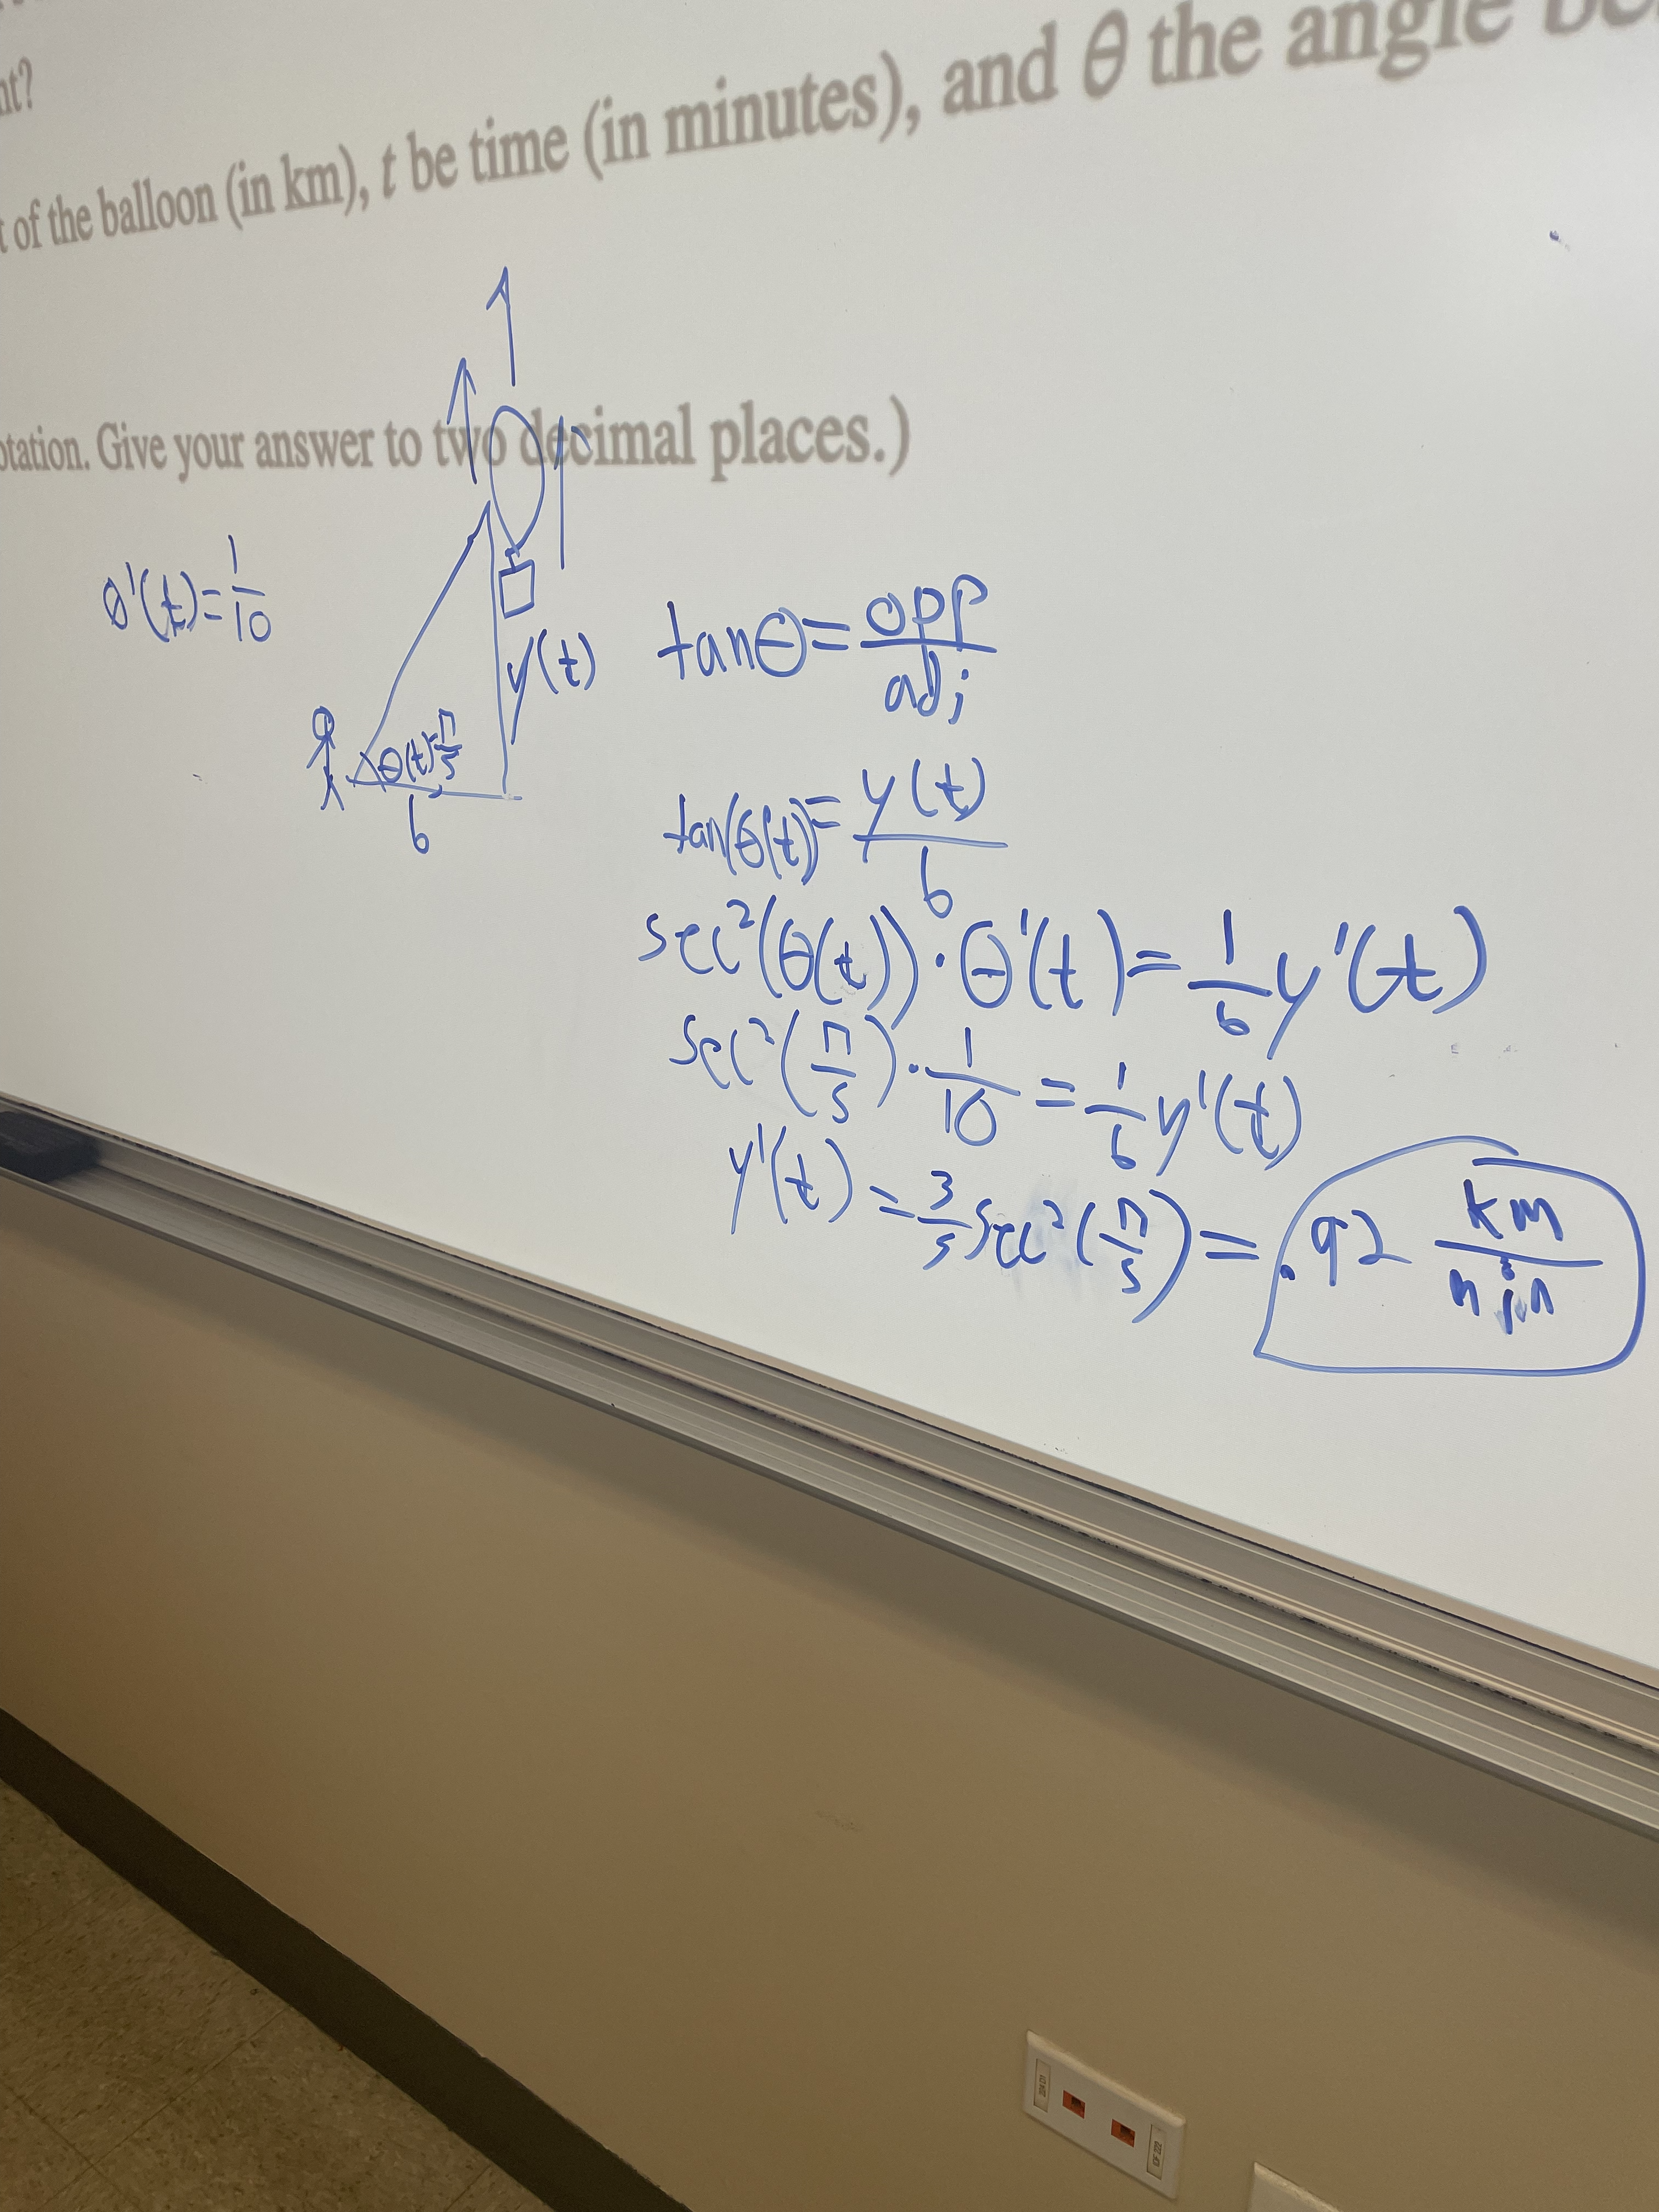 nt?
of the balloon (in km), t be time (in minutes), and θ the angle
otation. Give your answer to two decimal places.)
θ'(t)=1/10
y(t)
θ(t)=π/5
6
tanθ=opp/adj
tan(θ(t))=y(t)/6
sec²(θ(t))·θ'(t)=1/6y'(t)
sec²(π/5)·1/10=1/6y'(t)
y'(t)=3/5sec²(π/5)=.92 km/min